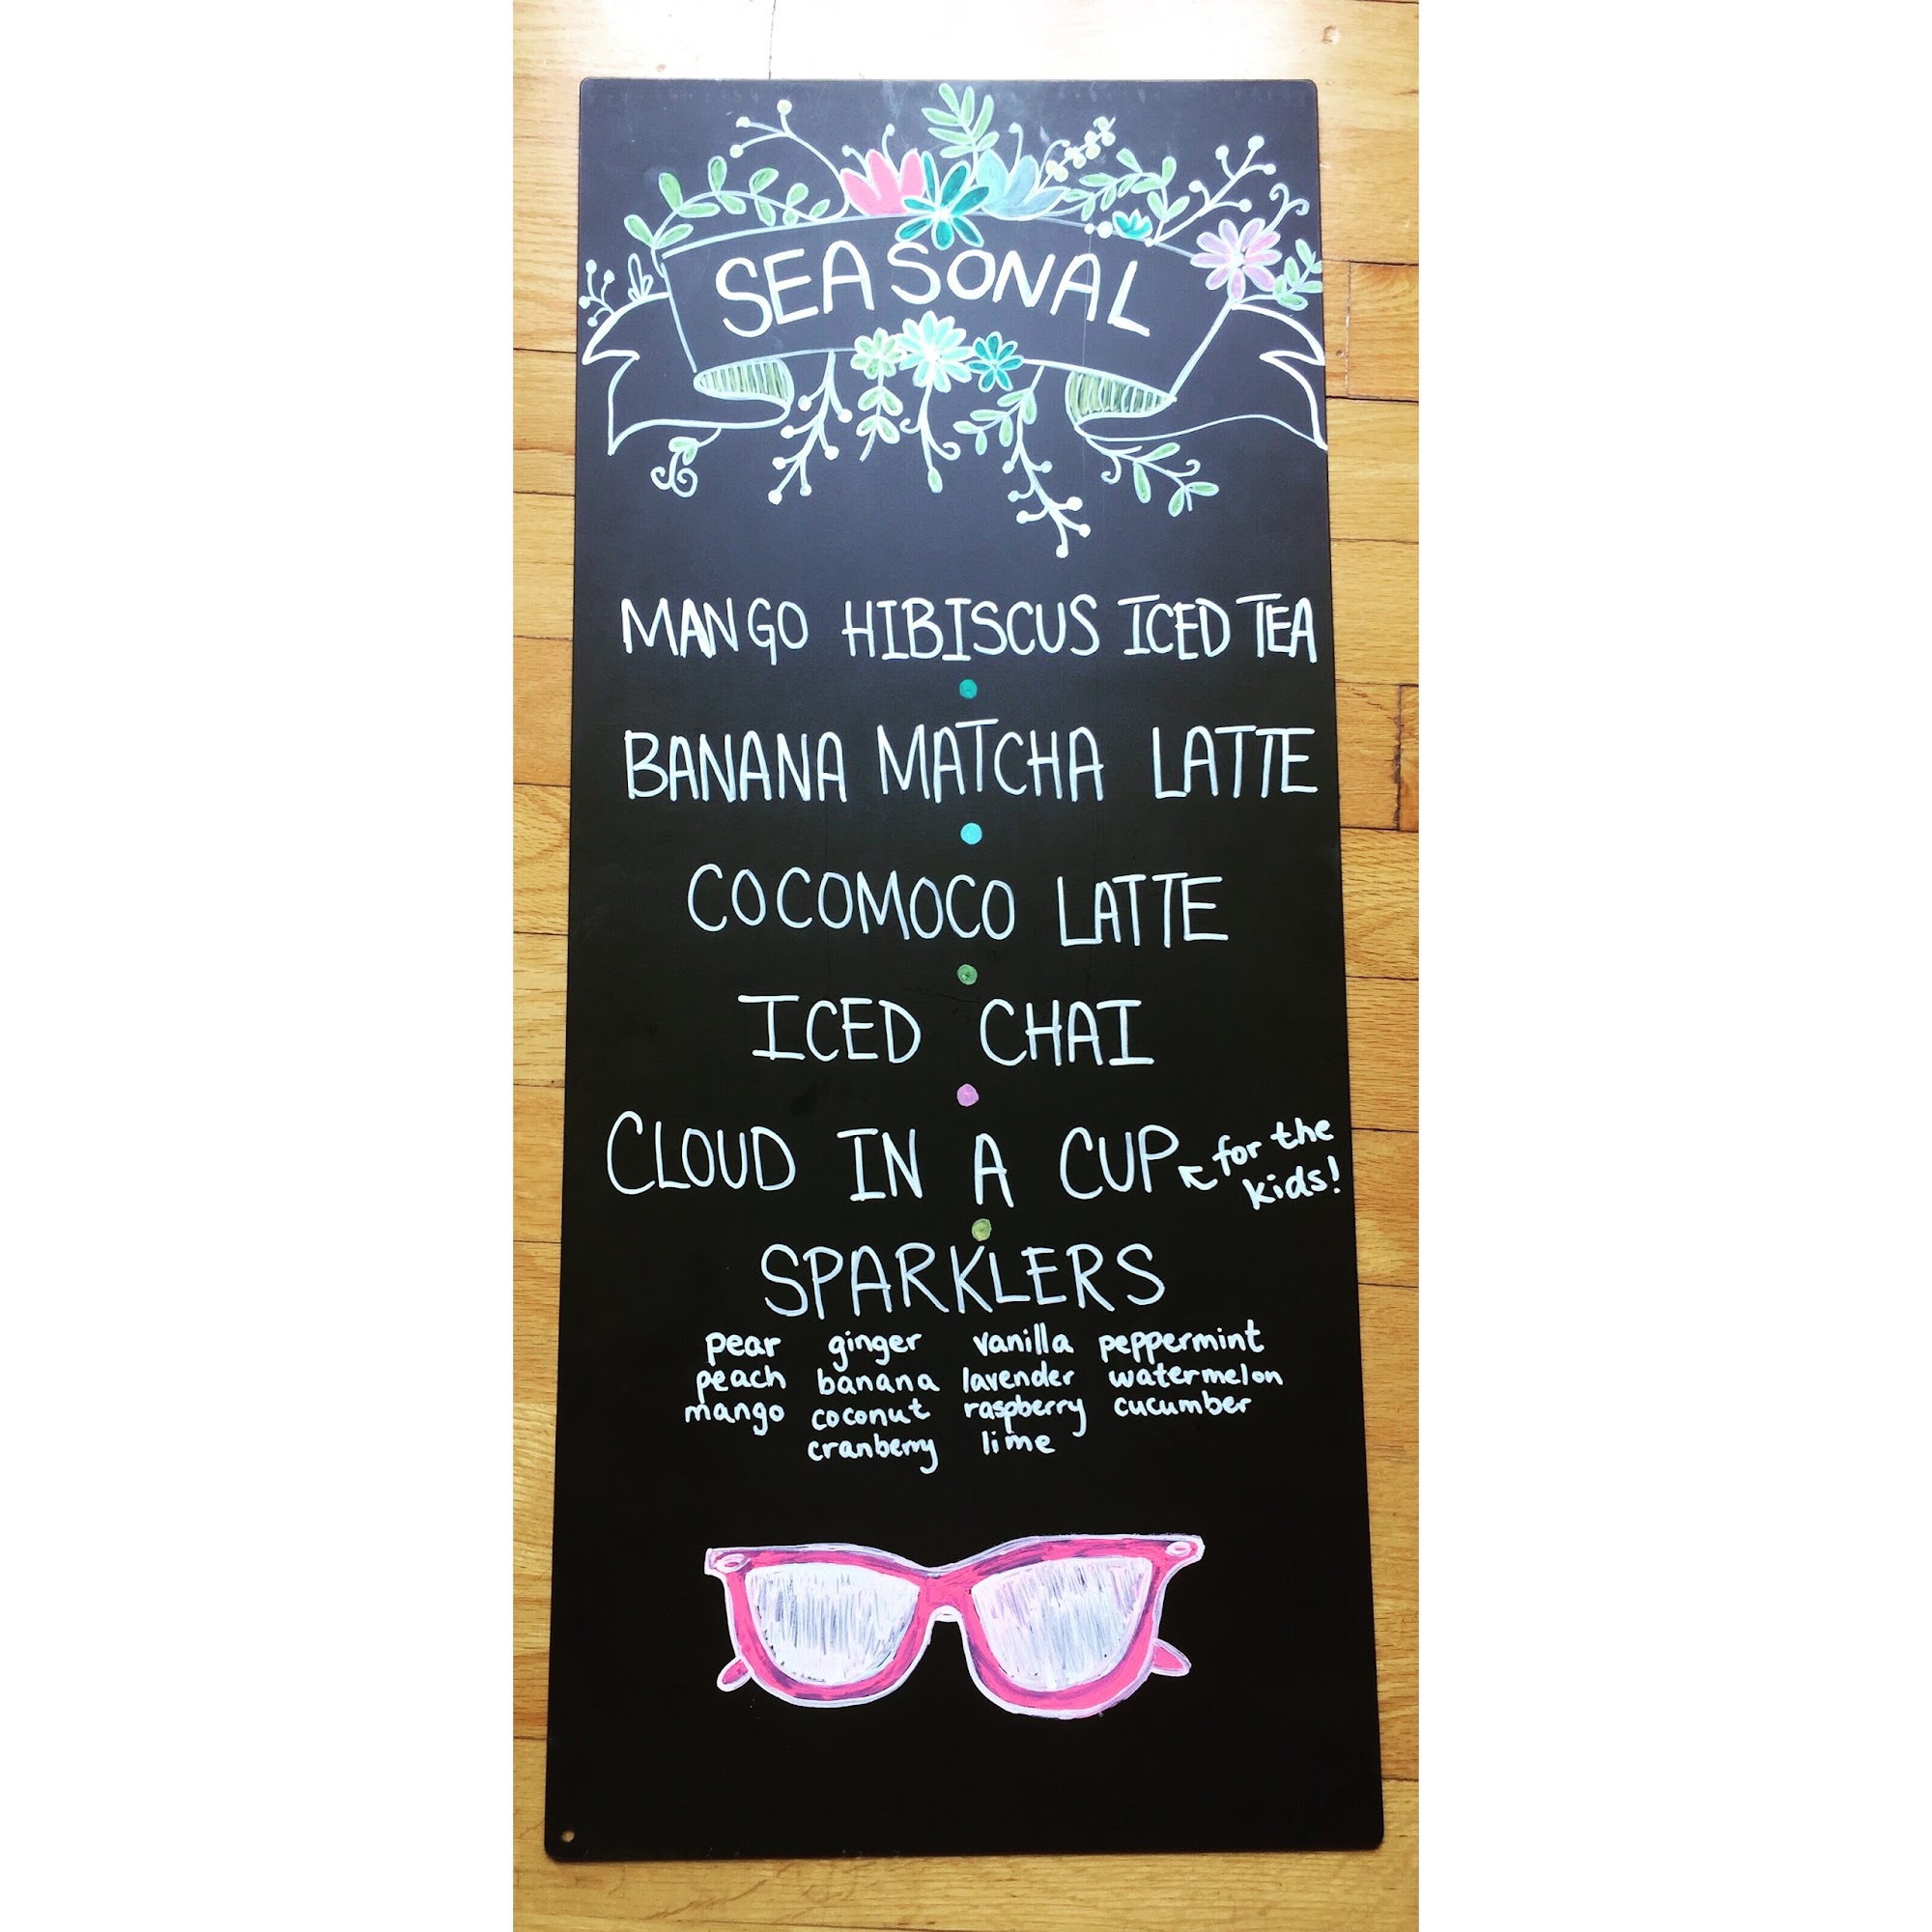 SEASONAL
MANGO HIBISCUS ICED TEA
BANANA MATCHA LATTE
COCOMOCO LATTE
ICED CHAI
CLOUD IN A CUP for the
kids!
SPARKLERS
pear ginger vanilla peppermint
peach banana lavender watermelon
mango coconut raspberry cucumber
cranberry lime